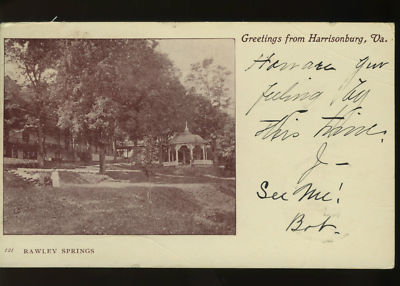 Greetings from Harrisonburg, Va.
How are you
feeling by
this time.
J—
See Me!
Bob.
121 RAWLEY SPRINGS